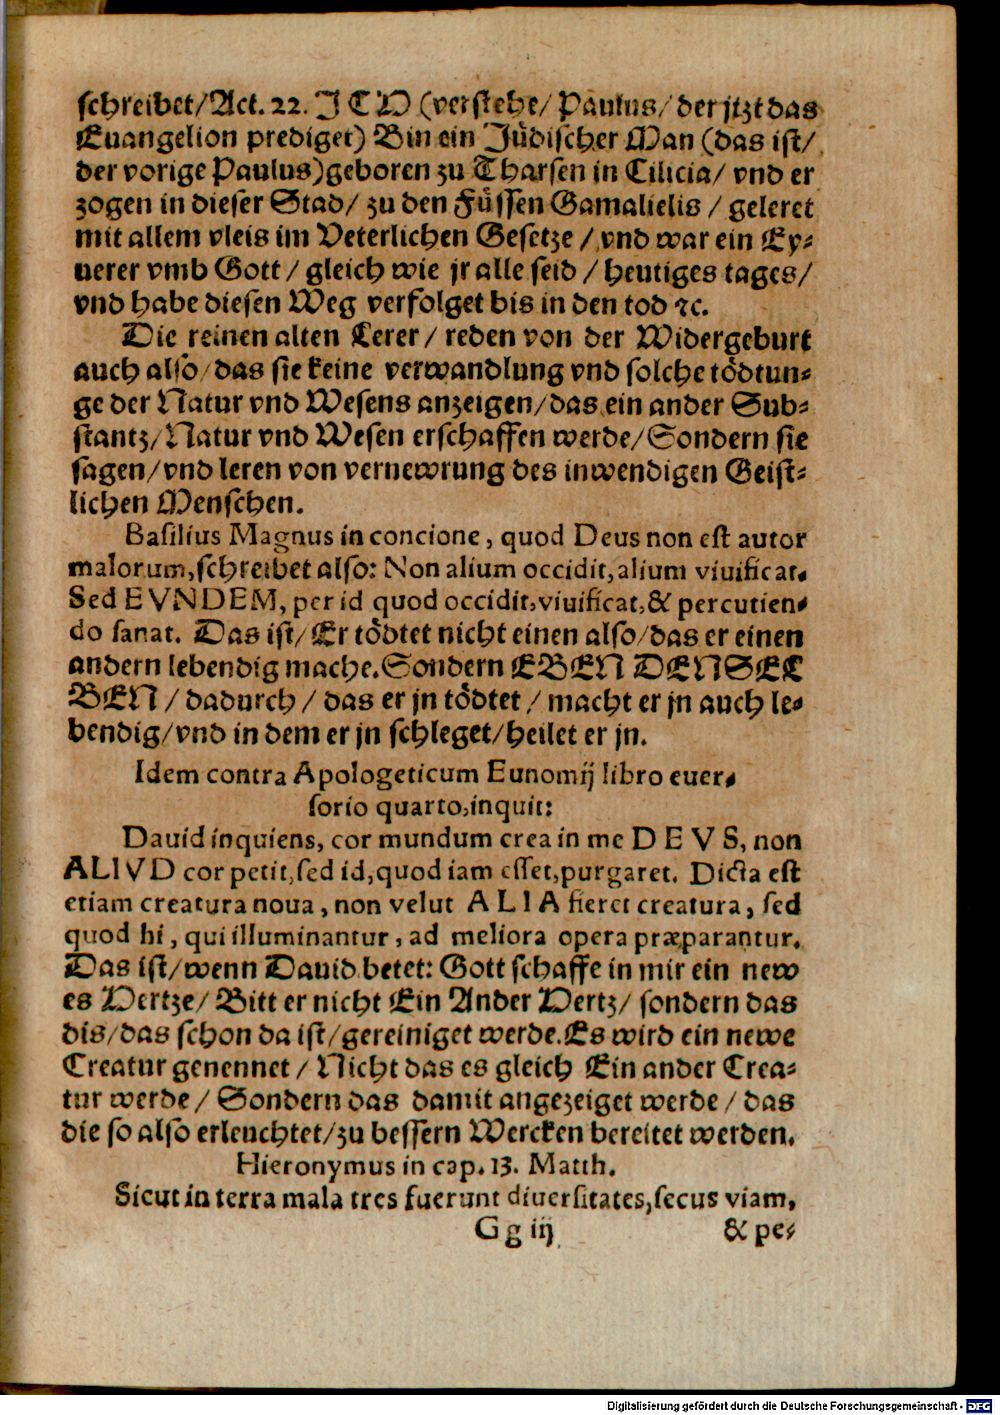 schreibet/Act. 22. ICH (verstehe/ Paulus/ der jtzt das
Euangelion prediget) Bin ein Jüdischer Man (das ist/
der vorige Paulus) geboren zu Tharsen in Cilicia/ vnd er
zogen in dieser Stad/ zu den Füssen Gamalielis / geleret
mit allem vleis im Veterlichen Gesetze / vnd war ein Ey-
uerer vmb Gott / gleich wie jr alle seid / heutiges tages/
vnd habe diesen Weg verfolget bis in den tod ꝛc.
Die reinen alten Lerer / reden von der Widergeburt
auch also/das sie keine verwandlung vnd solche tödtun-
ge der Natur vnd Wesens anzeigen/das ein ander Sub-
stantz/Natur vnd Wesen erschaffen werde/Sondern sie
sagen/vnd leren von vernewrung des inwendigen Geist-
lichen Menschen.
Basilius Magnus in concione, quod Deus non est autor
malorum, schreibet also: Non alium occidit, alium viuificat.
Sed EVNDEM, per id quod occidit, viuificat, & percutien-
do sanat. Das ist/ Er tödtet nicht einen also/das er einen
andern lebendig mache. Sondern EBEN DENSEL
BEN / dadurch / das er jn tödtet / macht er jn auch le-
bendig/vnd in dem er jn schleget/heilet er jn.
Idem contra Apologeticum Eunomij libro euer-
sorio quarto, inquit:
Dauid inquiens, cor mundum crea in me DEVS, non
ALIVD cor petit, sed id, quod iam esset, purgaret. Dicta est
etiam creatura noua, non velut ALIA fieret creatura, sed
quod hi, qui illuminantur, ad meliora opera præparantur.
Das ist/wenn Dauid betet: Gott schaffe in mir ein new
es Hertze/ Bitt er nicht Ein Ander Hertz/ sondern das
dis/das schon da ist/gereiniget werde. Es wird ein newe
Creatur genennet / Nicht das es gleich Ein ander Crea-
tur werde / Sondern das damit angezeiget werde / das
die so also erleuchtet/zu bessern Wercken bereitet werden.
Hieronymus in cap. 13. Matth.
Sicut in terra mala tres fuerunt diuersitates, secus viam,
Gg iij & pe-
Digitalisierung gefördert durch die Deutsche Forschungsgemeinschaft - DFG